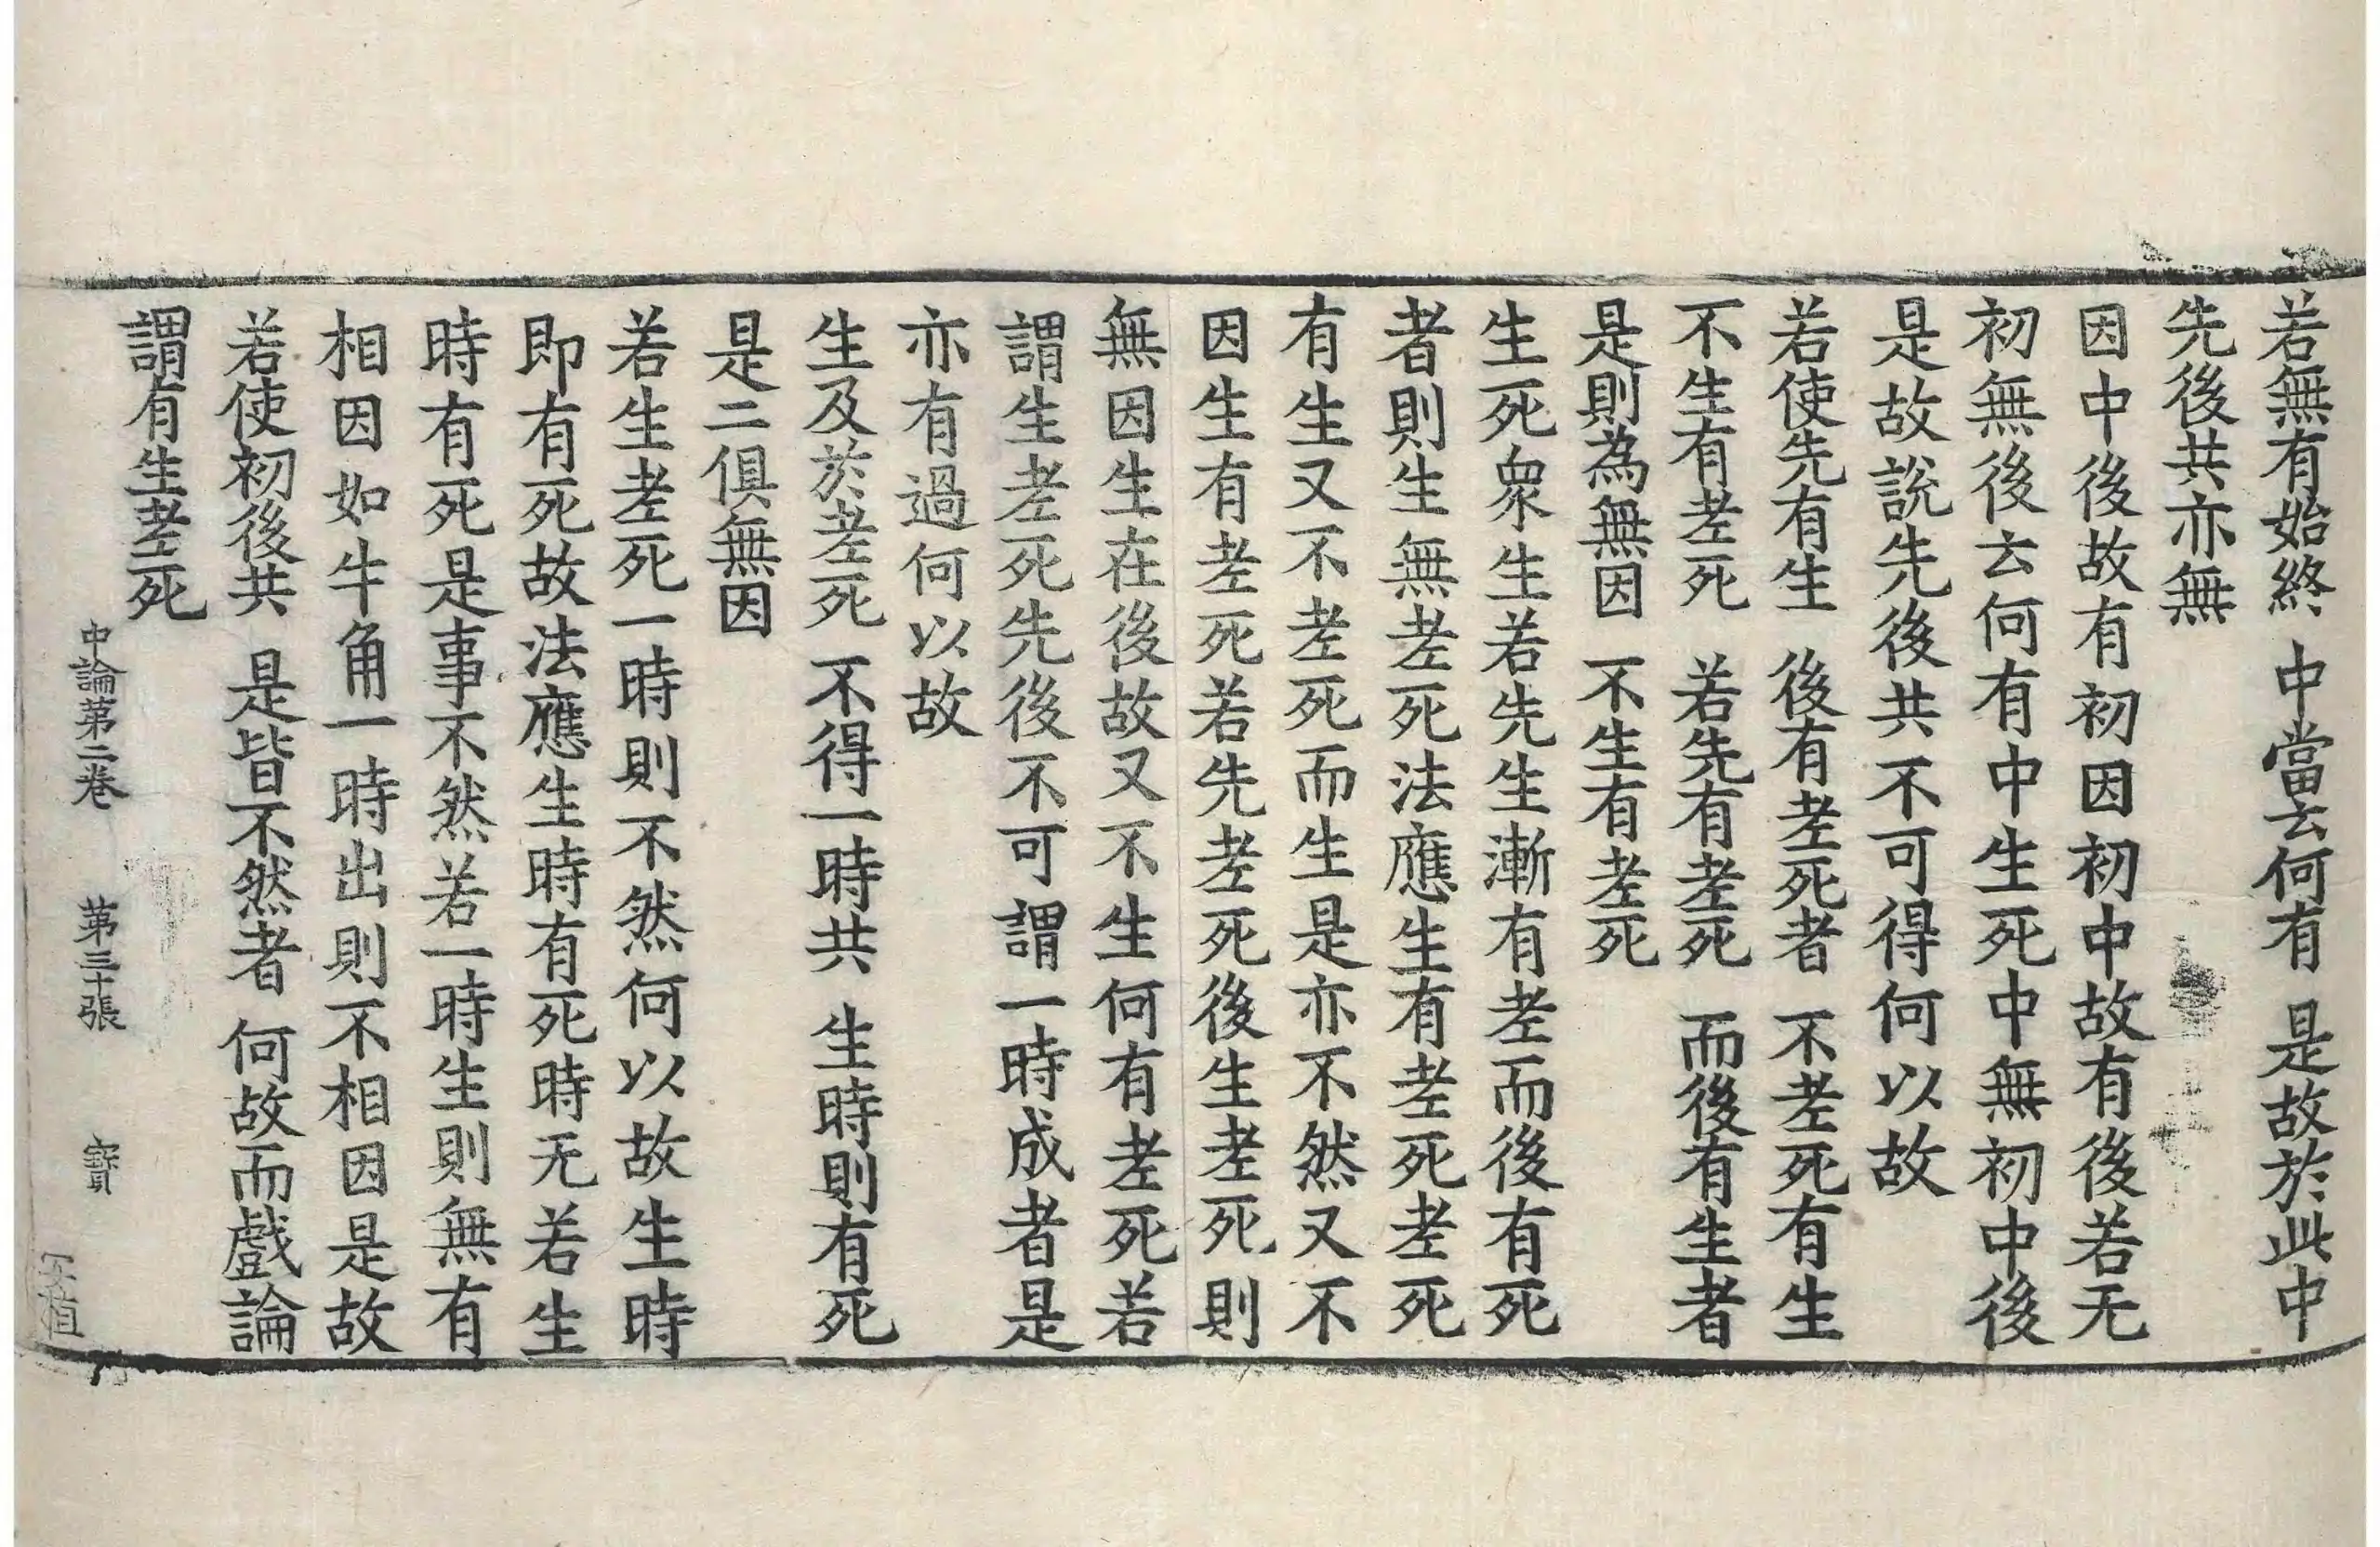 若無有始終　中當云何有　是故於此中
先後共亦無
因中後故有初因初中故有後若无
初無後云何有中生死中無初中後
是故說先後共不可得何以故
若使先有生　後有老死者　不老死有生
不生有老死　若先有老死　而後有生者
是則為無因　不生有老死
生死衆生若先生漸有老而後有死
者則生無老死法應生有老死老死
有生又不老死而生是亦不然又不
因生有老死若先老死後生老死則
無因生在後故又不生何有老死若
謂生老死先後不可謂一時成者是
亦有過何以故
生及於老死　不得一時共　生時則有死
是二俱無因
若生老死一時則不然何以故生時
即有死故法應生時有死時无若生
時有死是事不然若一時生則無有
相因如牛角一時出則不相因是故
若使初後共　是皆不然者　何故而戲論
謂有生老死
中論第二卷　第三十張　寶